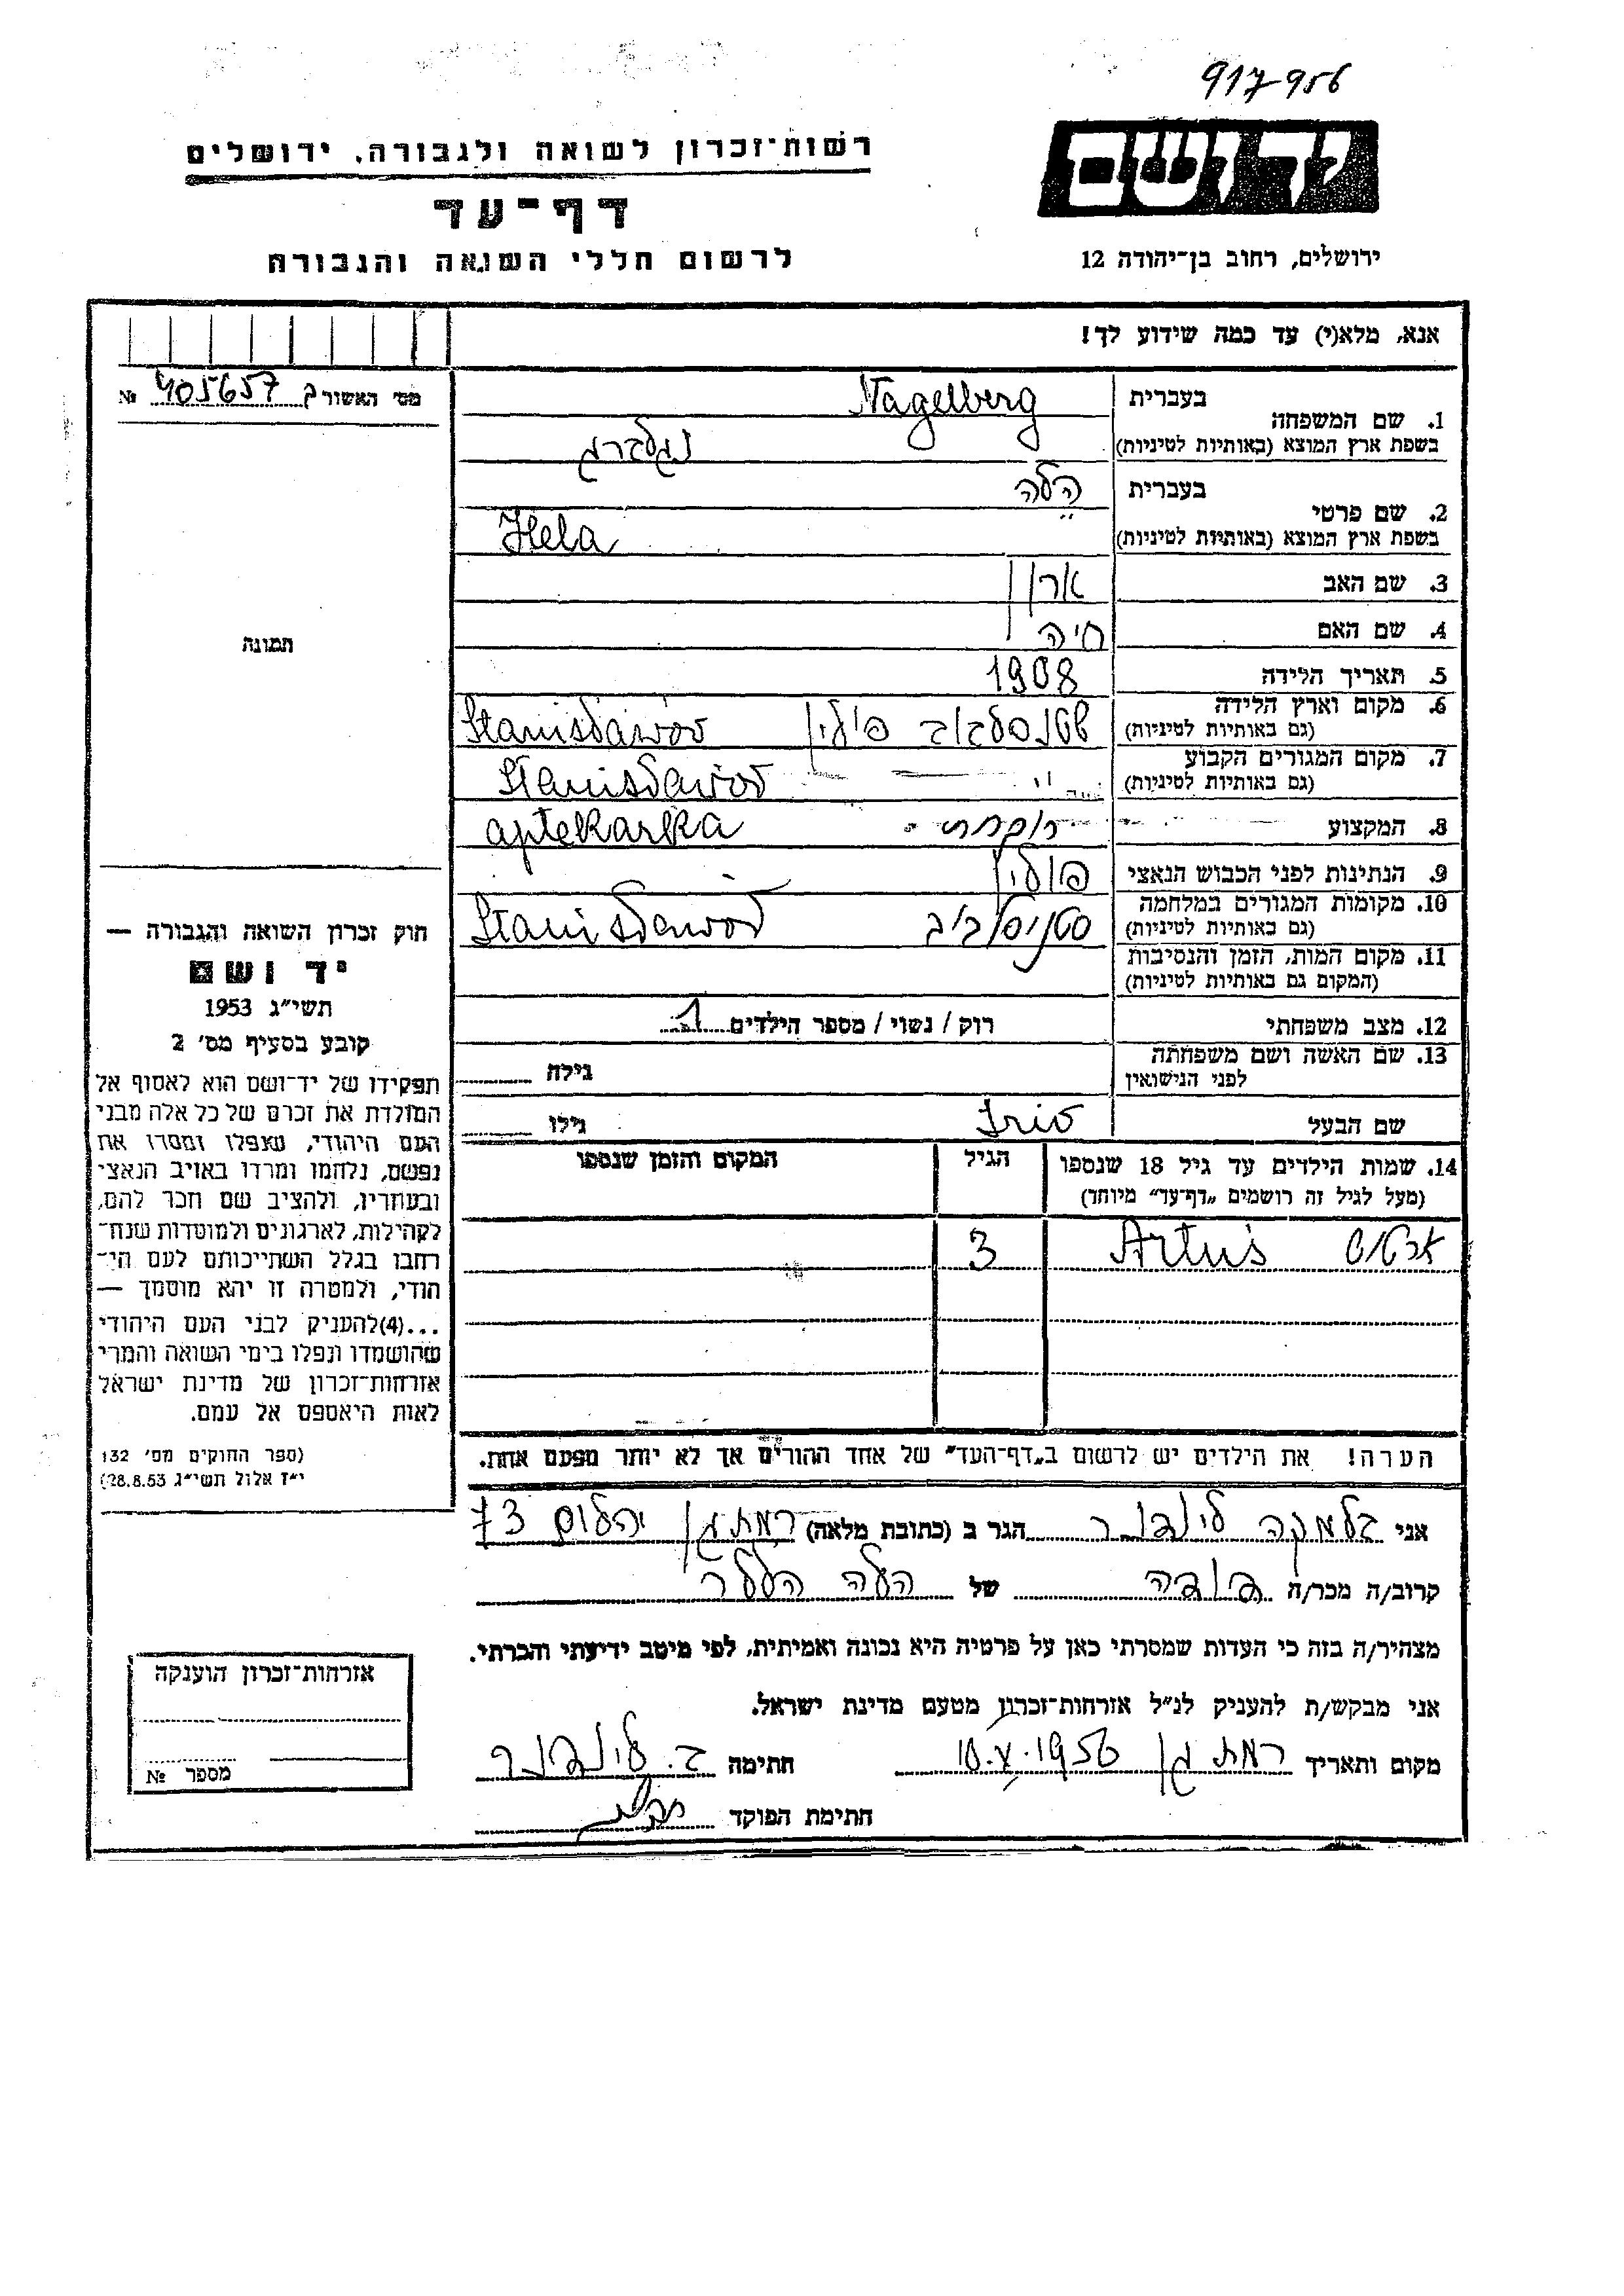 917956
יד ושם
רשות־זכרון לשואה ולגבורה, ירושלים
דף־עד
לרשום חללי השואה והגבורה
ירושלים, רחוב בן־יהודה 12
אנא, מלא(י) עד כמה שידוע לך!
מס׳ האשור 405657 №
1. שם המשפחה
בעברית Nagelberg
בשפת ארץ המוצא (באותיות לטיניות) נגלברג
2. שם פרטי
בעברית הלה
בשפת ארץ המוצא (באותיות לטיניות) Hela
3. שם האב
4. שם האם חיה
5. תאריך הלידה 1908
6. מקום וארץ הלידה פולין Stanisławów
(גם באותיות לטיניות)
7. מקום המגורים הקבוע Stanisławów
(גם באותיות לטיניות)
8. המקצוע רוקחת aptekarka
9. הנתינות לפני הכבוש הנאצי פולין
10. מקומות המגורים במלחמה Stanisławów
(גם באותיות לטיניות)
11. מקום המות, הזמן והנסיבות
(המקום גם באותיות לטיניות)
12. מצב משפחתי רוק / נשוי / מספר הילדים 1
13. שם האשה ושם משפחתה
לפני הנישואין גילה
שם הבעל גילו
14. שמות הילדים עד גיל 18 שנספו
(מעל לגיל זה רושמים „דף־עד״ מיוחד)
הגיל
המקום והזמן שנספו
ארטוש Artuś 3
הערה! את הילדים יש לרשום ב„דף־העד״ של אחד ההורים אך לא יותר מפעם אחת.
תמונה
חוק זכרון השואה והגבורה —
יד ושם
תשי״ג 1953
קובע בסעיף מס׳ 2
תפקידו של יד־ושם הוא לאסוף אל
המולדת את זכרם של כל אלה מבני
העם היהודי, שנפלו ומסרו את
נפשם, נלחמו ומרדו באויב הנאצי
ובעוזריו, ולהציב שם וזכר להם,
לקהילות, לארגונים ולמוסדות שנח־
רבו בגלל השתייכותם לעם הי־
הודי, ולמטרה זו יהא מוסמך —
...(4)להעניק לבני העם היהודי
שהושמדו ונפלו בימי השואה והמרי
אזרחות־זכרון של מדינת ישראל
לאות היאספם אל עמם.
(ספר החוקים מס׳ 132
י״ז אלול תשי״ג 28.8.53)
אני הגר ב (כתובת מלאה) רמת גן יהלום 73
קרוב/ה מכר/ה של הלה הללר
מצהיר/ה בזה כי העדות שמסרתי כאן על פרטיה היא נכונה ואמיתית, לפי מיטב ידיעתי והכרתי.
אני מבקש/ת להעניק לנ״ל אזרחות־זכרון מטעם מדינת ישראל.
מקום ותאריך רמת גן 1956 חתימה
חתימת הפוקד
אזרחות־זכרון הוענקה
מספר №